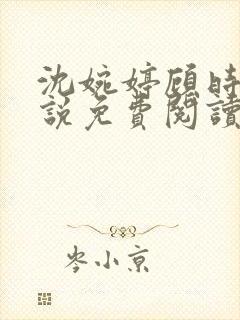 沈婉婷顾时
說免費閱讀
岑小京